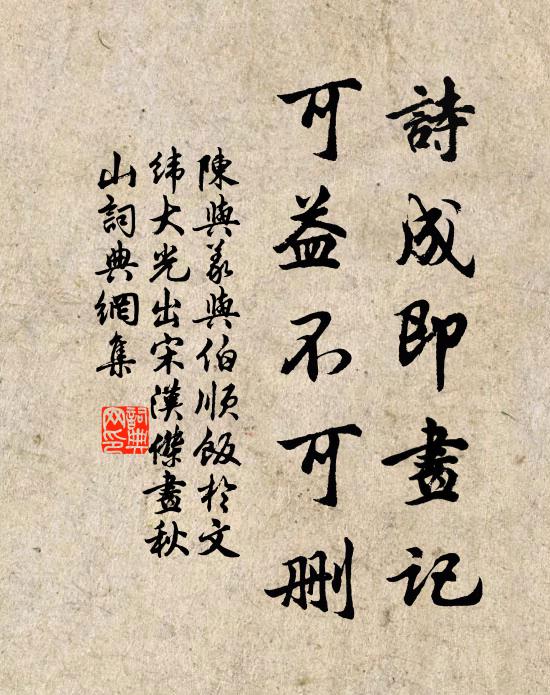 詩成即畫記
可益不可刪
陳與義與伯順飯於文
緯大光出宋漢傑畫秋
山詞典網集
詞典
网印